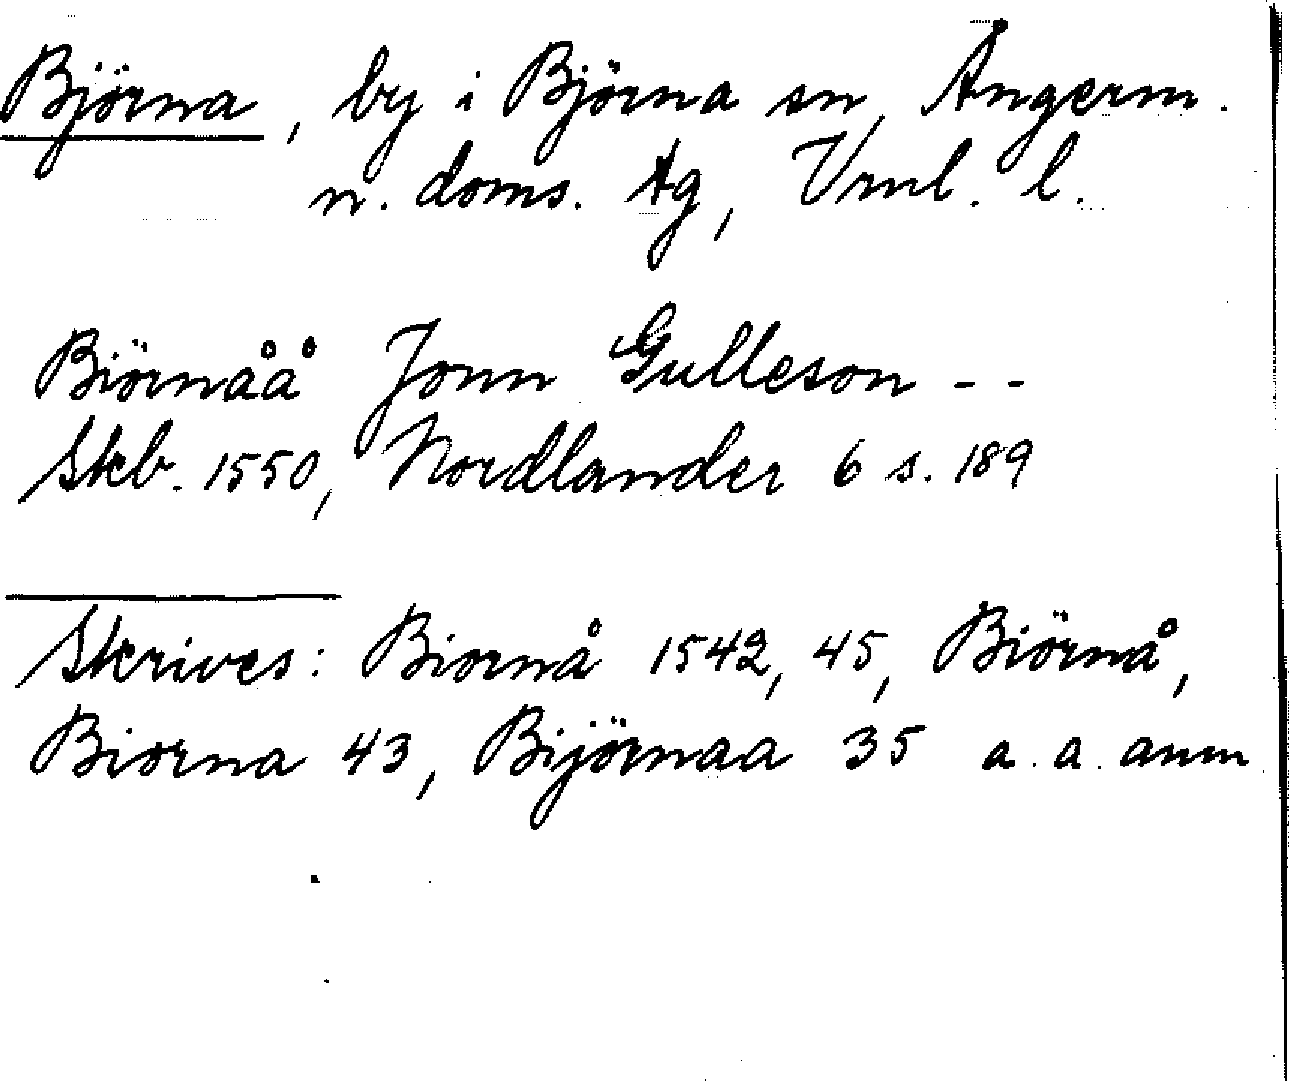 Björna, by i Björna sn, Ångerm.
n. doms. tg, Vrnl. l.
Biörnåå Jonn Gulleson - -
Skb. 1550, Nordlander 6 s. 189
Skrives: Biornå 1542, 45, Biörnå,
Biorna 43, Bijörnaa 35 a. a. anm